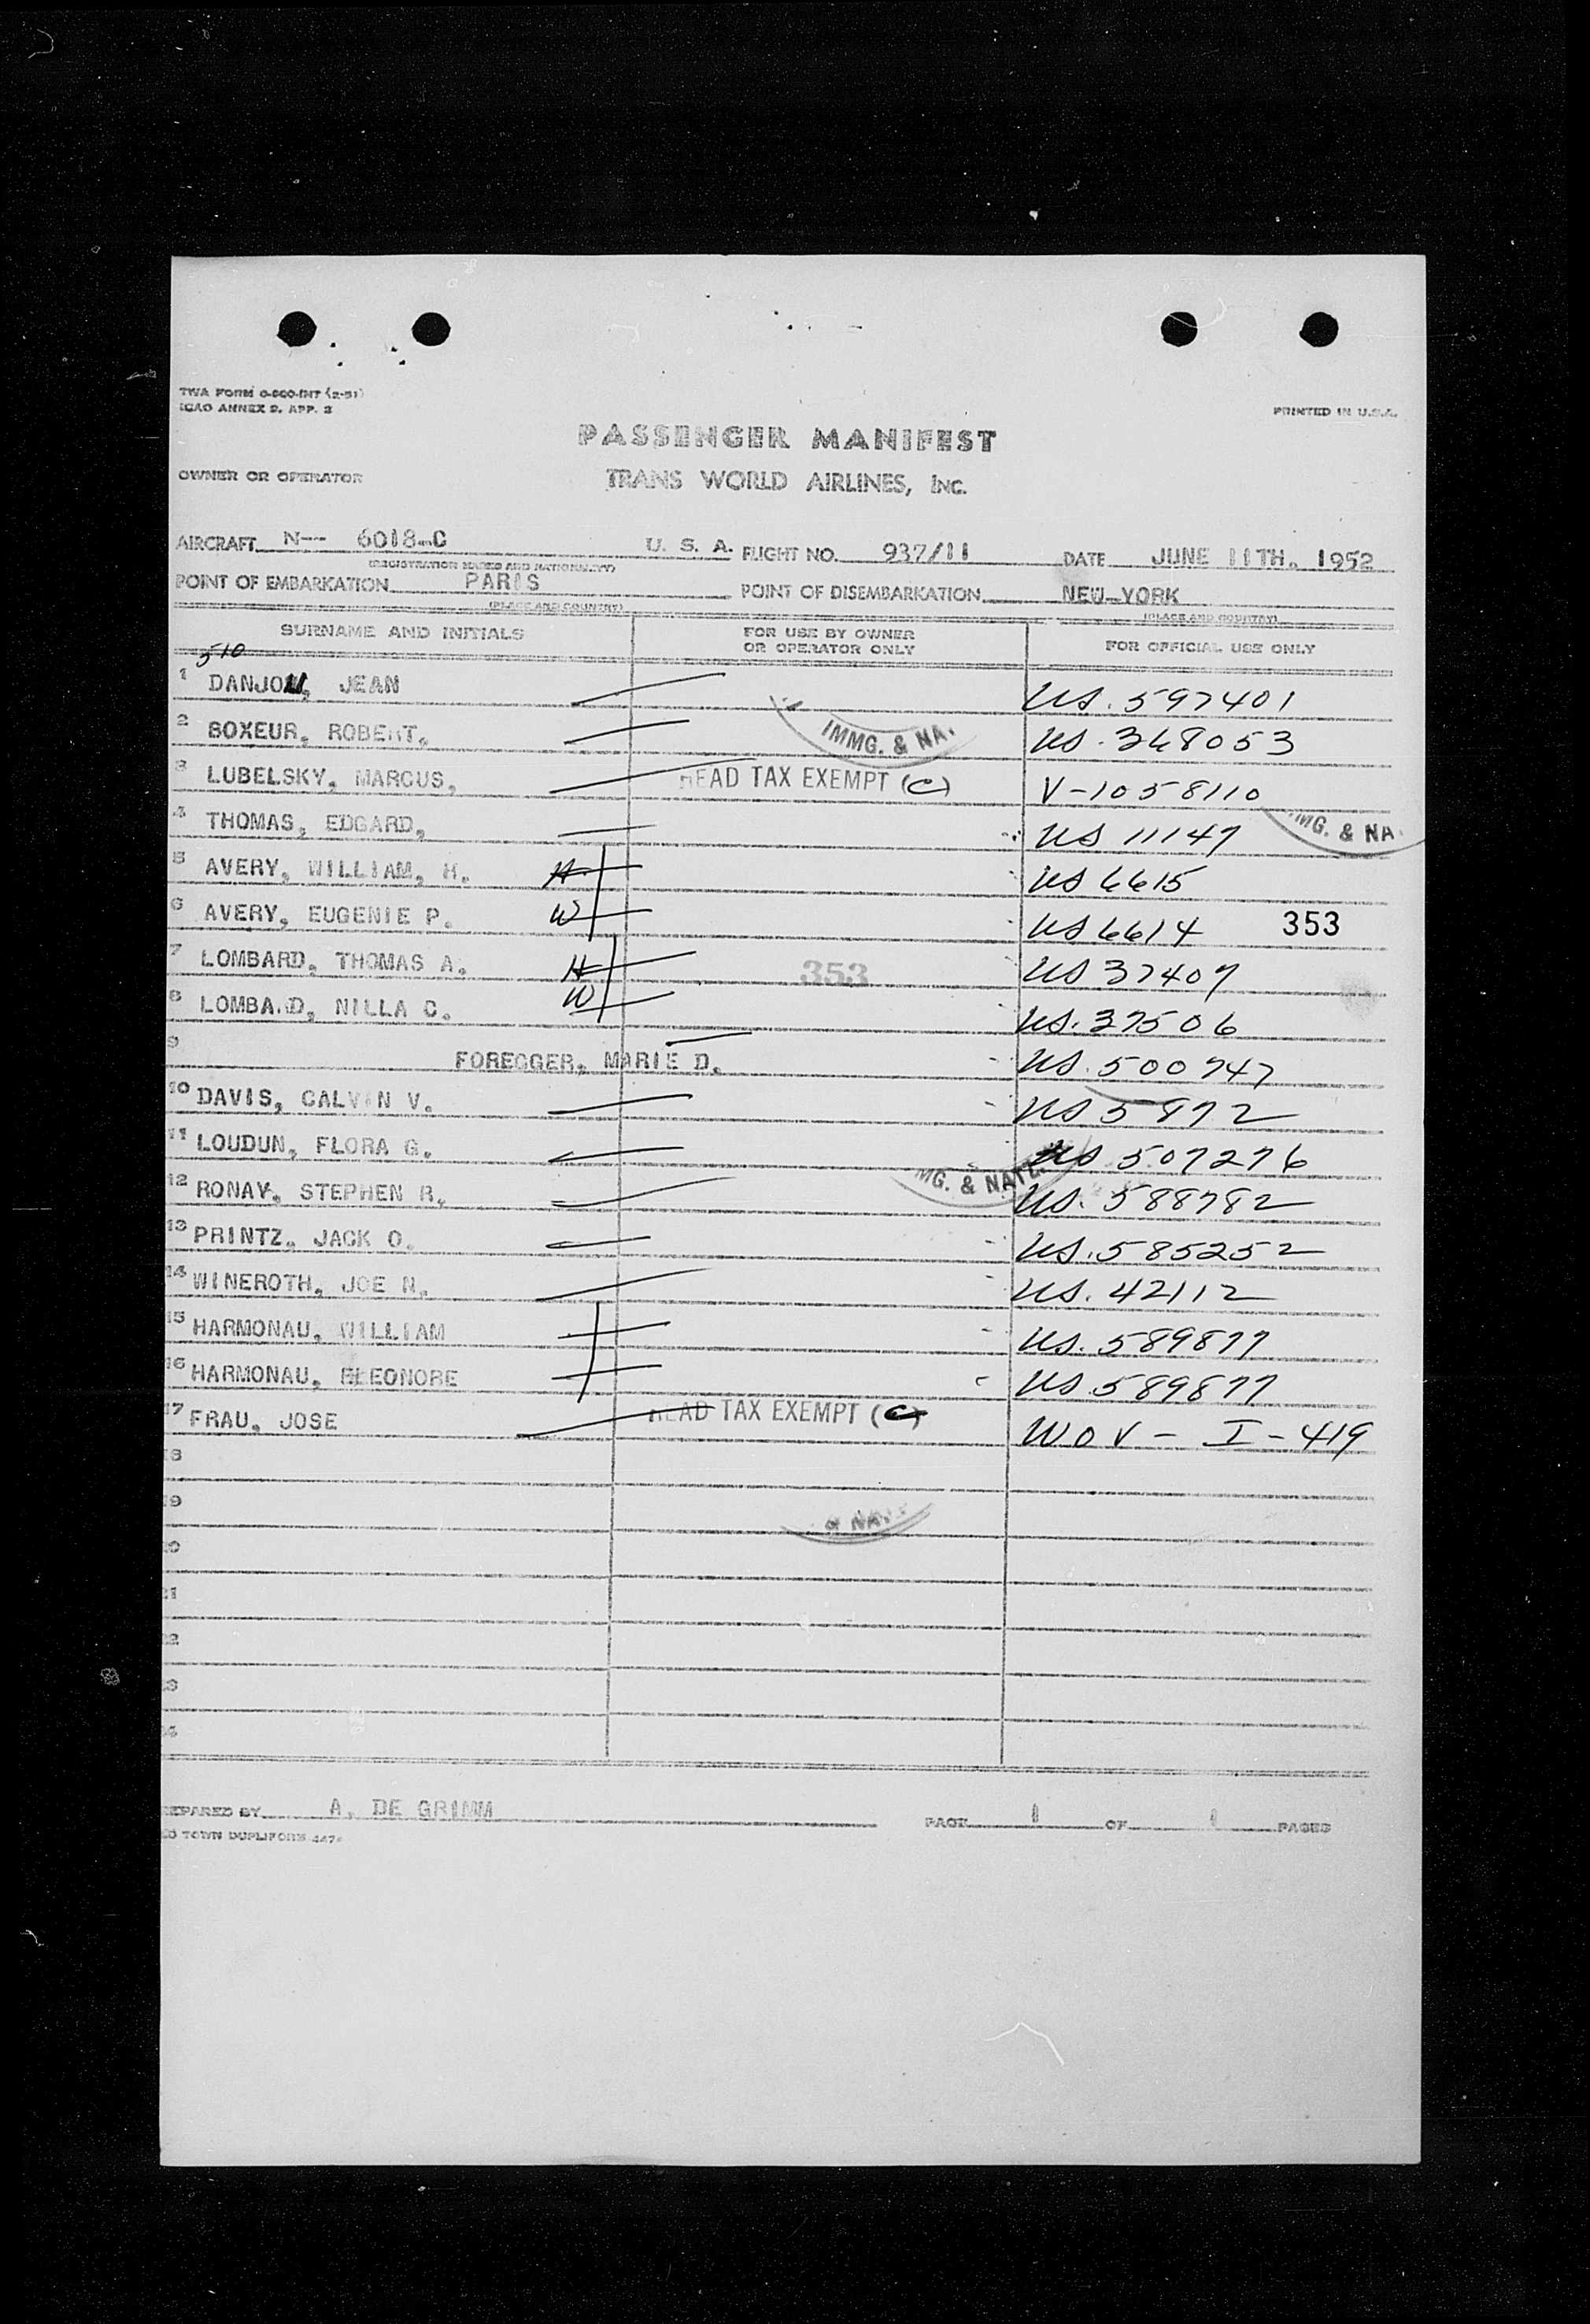 TWA FORM O-800-INT (2-51)
ICAO ANNEX 9, APP. 3
PRINTED IN U.S.A.
PASSENGER MANIFEST
OWNER OR OPERATOR TRANS WORLD AIRLINES, INC.
AIRCRAFT N-- 6018-C U. S. A. FLIGHT NO. 937/11 DATE JUNE 11TH. 1952
(REGISTRATION MARKS AND NATIONALITY)
POINT OF EMBARKATION PARIS POINT OF DISEMBARKATION NEW-YORK
(PLACE AND COUNTRY) (PLACE AND COUNTRY)
SURNAME AND INITIALS FOR USE BY OWNER OR OPERATOR ONLY FOR OFFICIAL USE ONLY
510
1 DANJOU, JEAN US. 597401
2 BOXEUR, ROBERT, IMMG. & NA. US. 368053
3 LUBELSKY, MARCUS, HEAD TAX EXEMPT (C) V-1058110
4 THOMAS, EDGARD, US 11147 IMMG. & NA.
5 AVERY, WILLIAM, H. H US 6615
6 AVERY, EUGENIE P. W US 6614 353
7 LOMBARD, THOMAS A. H 353 US 37407
8 LOMBA.D, NILLA C. W US. 37506
9 FOREGGER, MARIE D. US. 500747
10 DAVIS, CALVIN V. US 5872
11 LOUDUN, FLORA G. US 507276
12 RONAY, STEPHEN R. MG. & NATZ. US. 588782
13 PRINTZ, JACK O. US. 585252
14 WINEROTH, JOE N. US. 42112
15 HARMONAU, WILLIAM US. 589877
16 HARMONAU, ELEONORE US 589877
17 FRAU, JOSE HEAD TAX EXEMPT (C) WOV - I-419
18
19 & NA
20
21
22
23
24
PREPARED BY A. DE GRIMM PAGE 1 OF 1 PAGES
TOWN DUPLIFORM